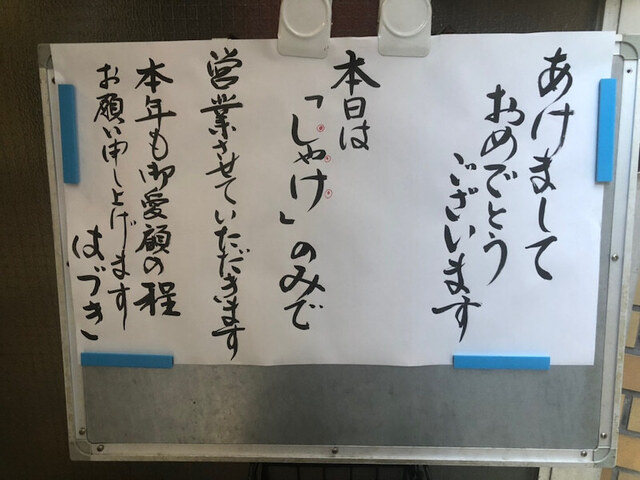 あけまして
おめでとう
ございます
本日は
「しゃけ」のみで
営業させていただきます
本年も御愛顧の程
お願い申し上げます
はづき